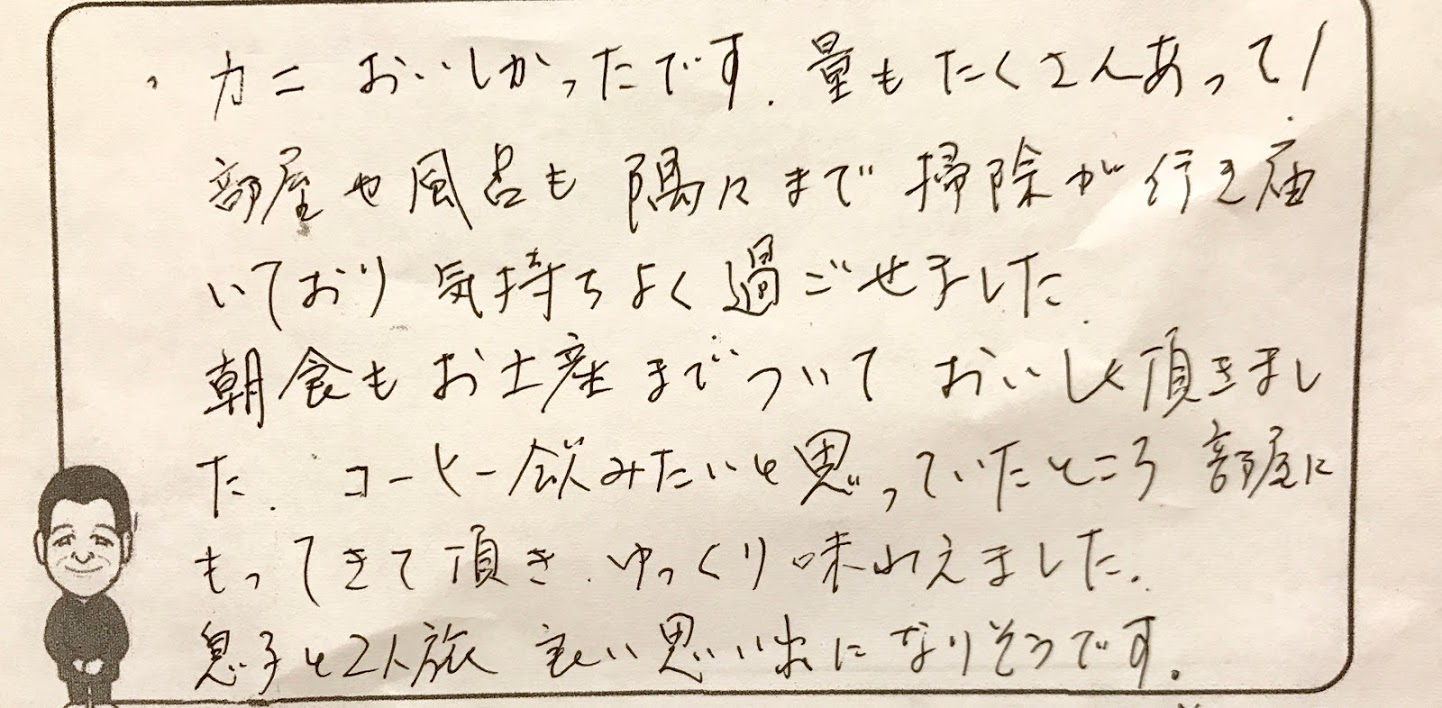 、カニ おいしかったです.量もたくさんあって!
部屋や風呂も 隅々まで 掃除が行き届
いており 気持ちよく過ごせました.
朝食もお土産までついて おいしく頂きまし
た.コーヒー飲みたいと思っていたところ 部屋に
もってきて頂き.ゆっくり味わえました.
息子と2人旅 良い思い出になりそうです.